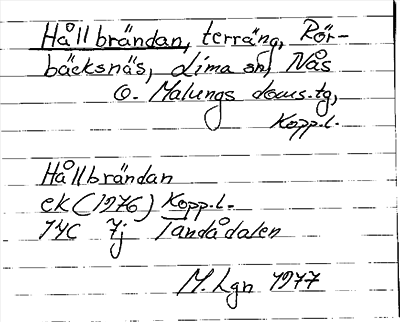 Hållbrändan, terräng, Rör-
bäcksnäs, Lima sn, Nås
o. Malungs doms.tg,
Kopp.l.
Hållbrändan
ek (1976) Kopp.l.
14C 7j Tandådalen
M. Lgn 1977